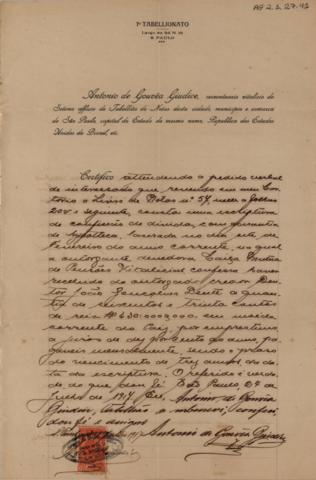 AP2.S.27.43
7º TABELLIONATO
Largo da Sé N. 15
S. PAULO
Antonio de Gouvêa Giudice, serventuario vitalicio do
Setimo officio de Tabellião de Notas desta cidade, municipio e comarca
de São Paulo, capital do Estado do mesmo nome, Republica dos Estados
Unidos do Brazil, etc.
Certifico attendendo a pedido verbal
de interessado que, revendo em meu Car-
torio o Livro de Notas nº 57, nelle a folhas
200 e seguinte, consta uma escriptura
de confissão de divida, com garantia
de hypotheca, lavrada no dia
Fevereiro do anno corrente, na qual
a outorgante devedora Caixa Mutua
de Pensões Vitalicias confessa haver
recebido do outorgado credor Dou-
tor João Gonçalves Dente a quan-
tia de e Trinta Contos
de reis Rs 630:000$000, em moeda
corrente do Paiz, por emprestimo,
a juros de dez por cento ao anno, pa-
gaveis mensalmente, sendo o prazo
do vencimento de tres annos da da-
ta da escriptura. O referido é verda-
de do que dou fé. São Paulo, 27 de
Junho de 1917. Eu, Antonio de Gouvêa
Giudice, Tabellião o subscrevi, conferi,
dou fé e assigno
Antonio de Gouvêa Giudice